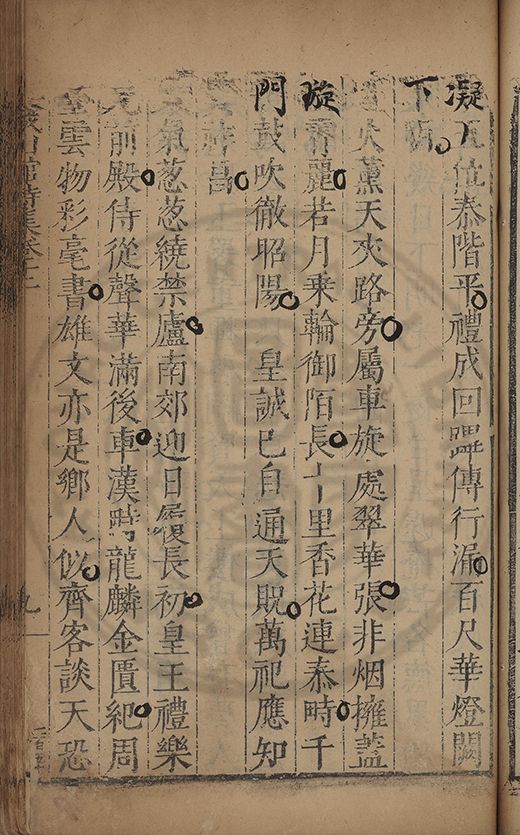 凝 位泰階平禮成回蹕傳行漏百尺華燈闕
下
火薰天夾路旁屬車旋處翠華張非烟擁蓋
璇霄麗若月乘輪御陌長十里香花連泰畤千
門鼓吹徹昭陽 皇誠已自通天貺萬祀應知
許昌
氣葱葱繞禁廬南郊迎日履長初皇王禮樂
元前殿侍從聲華滿後車漢畤龍麟金匱紀周
雲物彩毫書雄文亦是鄉人似齊客談天恐
山館詩集卷十二
九